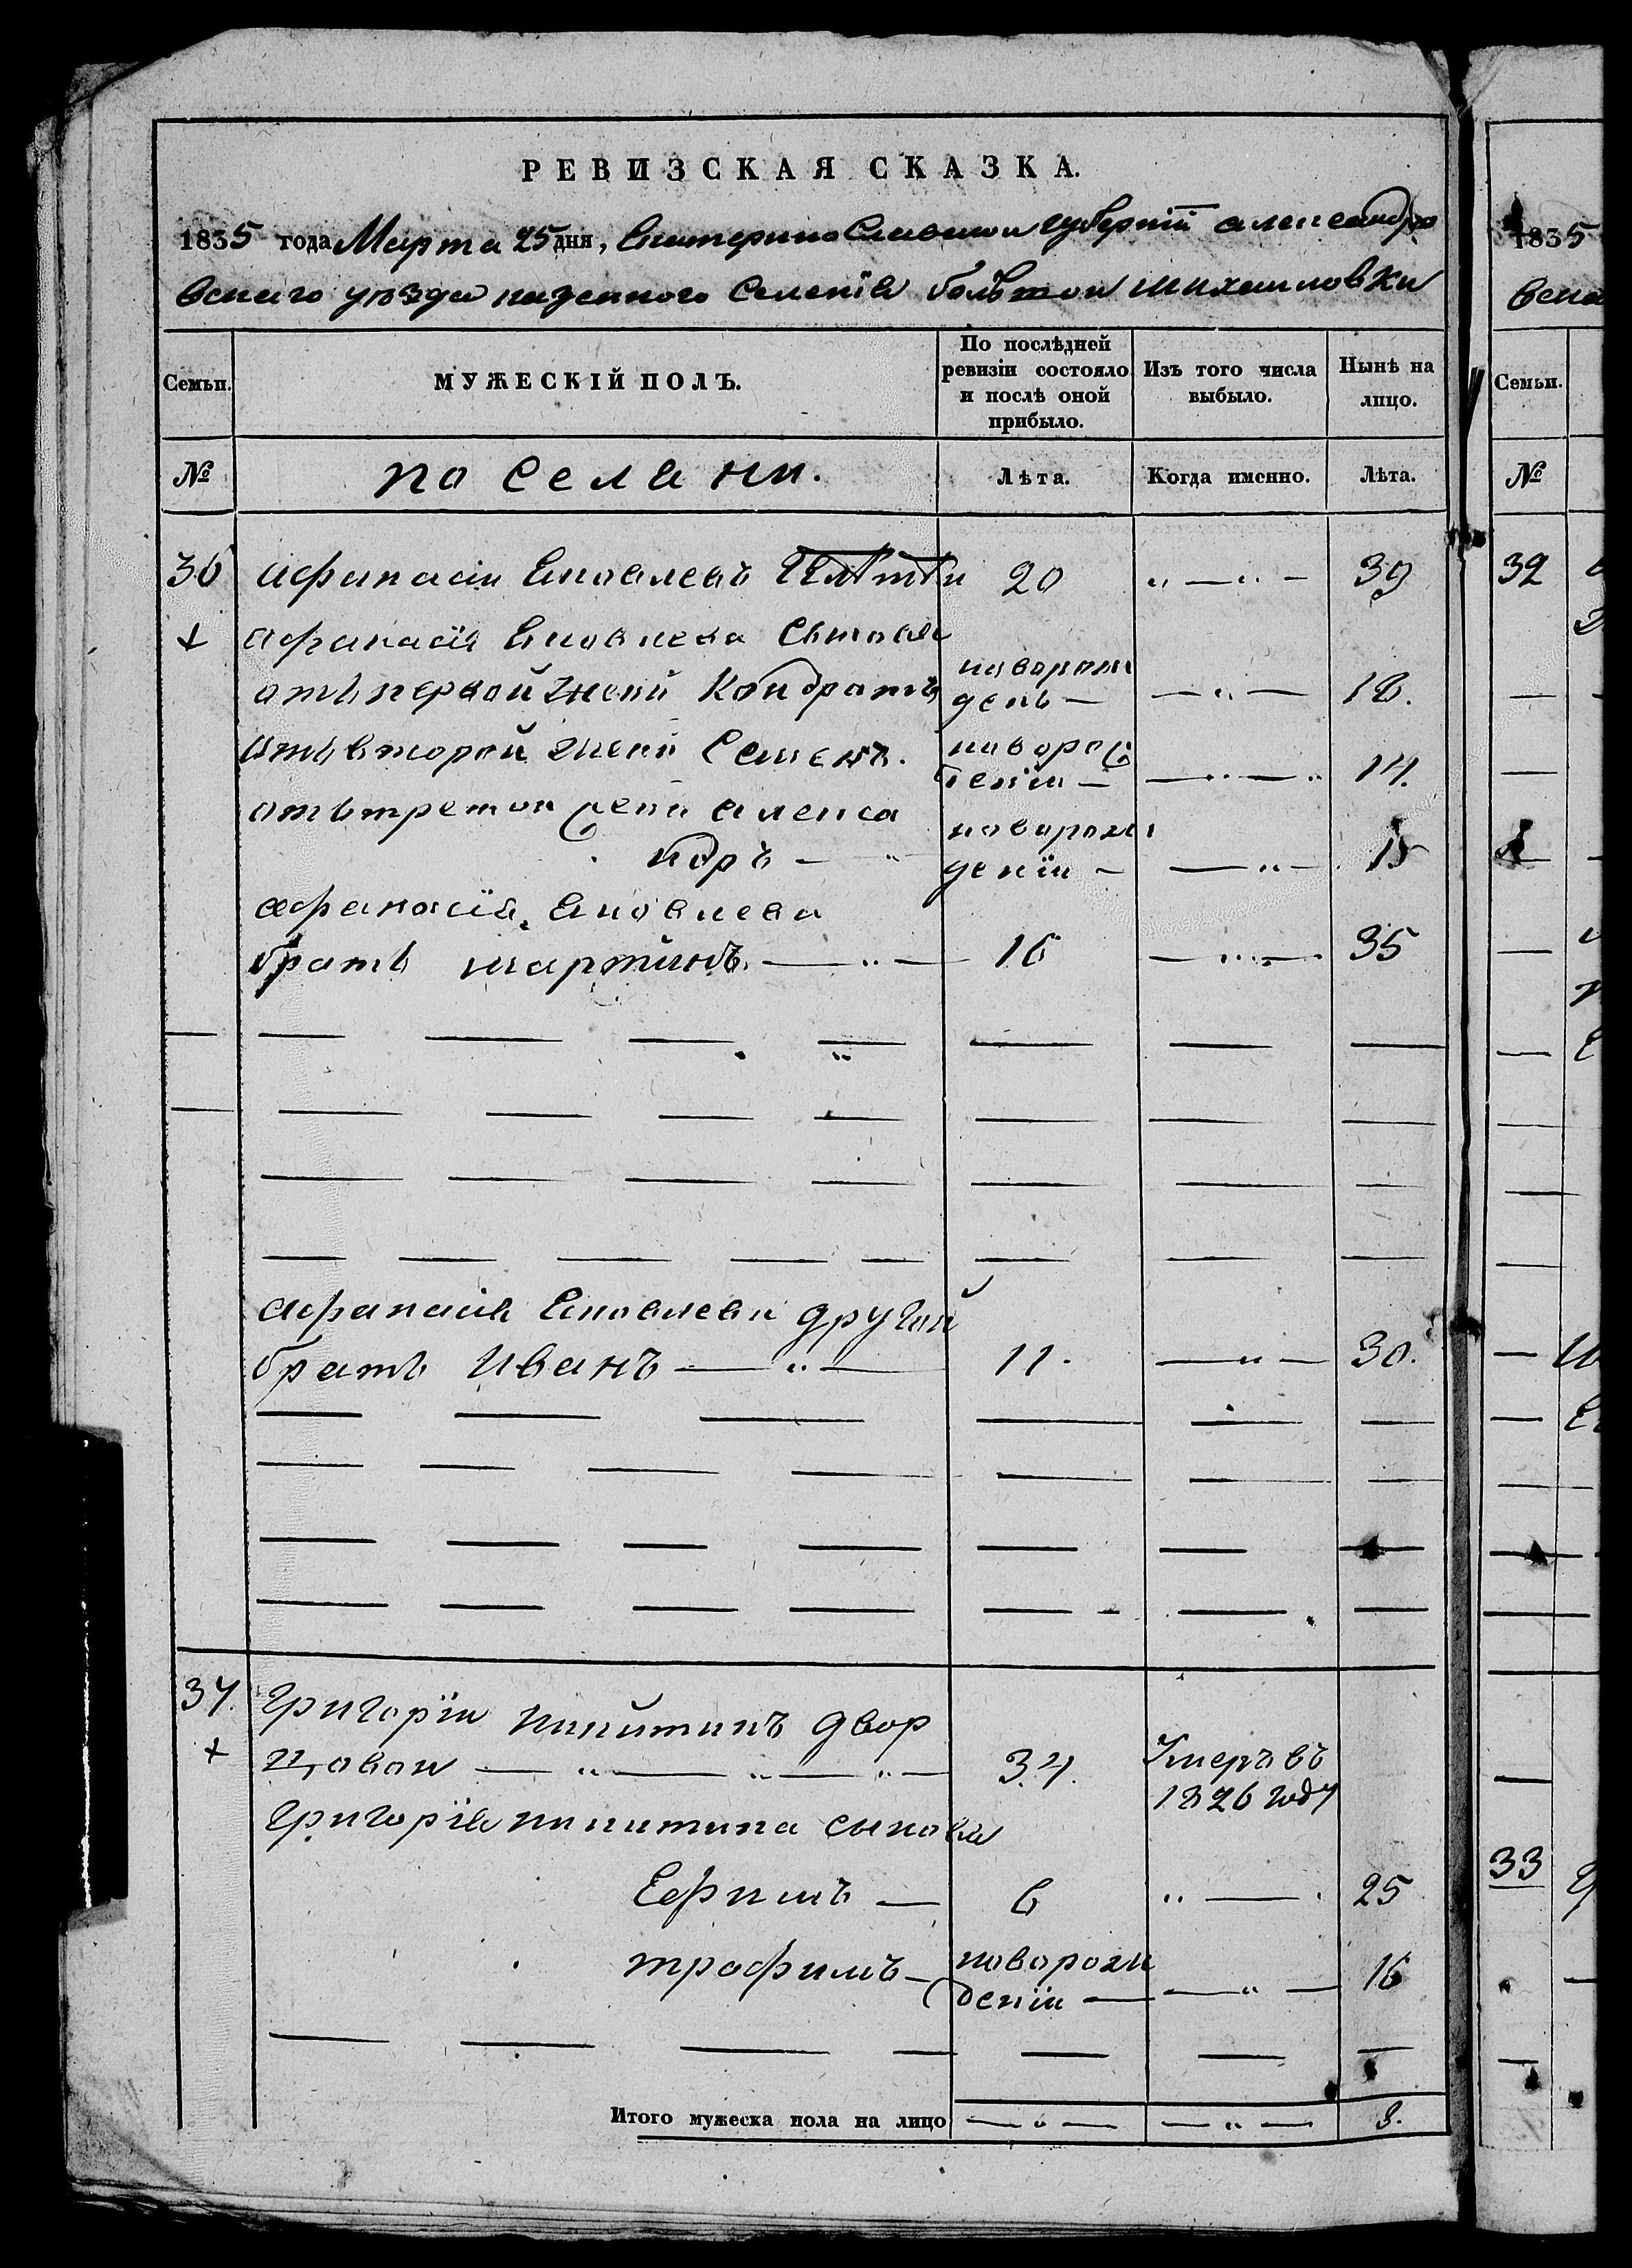 РЕВИЗСКАЯ СКАЗКА.
1835 года Марта 25 дня, Екатеринославской губернiи александро
вскаго уѣзда казенного Селенiя большой михайловки
Семьи.
МУЖЕСКIЙ ПОЛЪ.
По послѣдней ревизiи состояло и послѣ оной прибыло.
Изъ того числа выбыло.
Нынѣ на лицо.
№
поселяни.
Лѣта.
Когда именно.
Лѣта.
36 афанасiй Яковлевъ 20 39
афанасiя Яковлева Сыновя
отъ первой жени Кондратъ новорож день 18.
отъ второй жени Семенъ. новорож денiи 14.
отъ третой жени алекса
ндръ новорож денiи 15
афанасiя Яковлева
братъ мартинъ 16 35
афанасiя Яковлева другой
братъ Иванъ 11. 30.
37. Григорiй Никитинъ двор
цовой 34. Умеръ въ 1826 году
Григорiя никитина сыновя
Ефимъ 6 25
трофимъ новорож денiи 16
Итого мужеска пола на лицо 8.
1835
вска
Семьи.
№
32
33